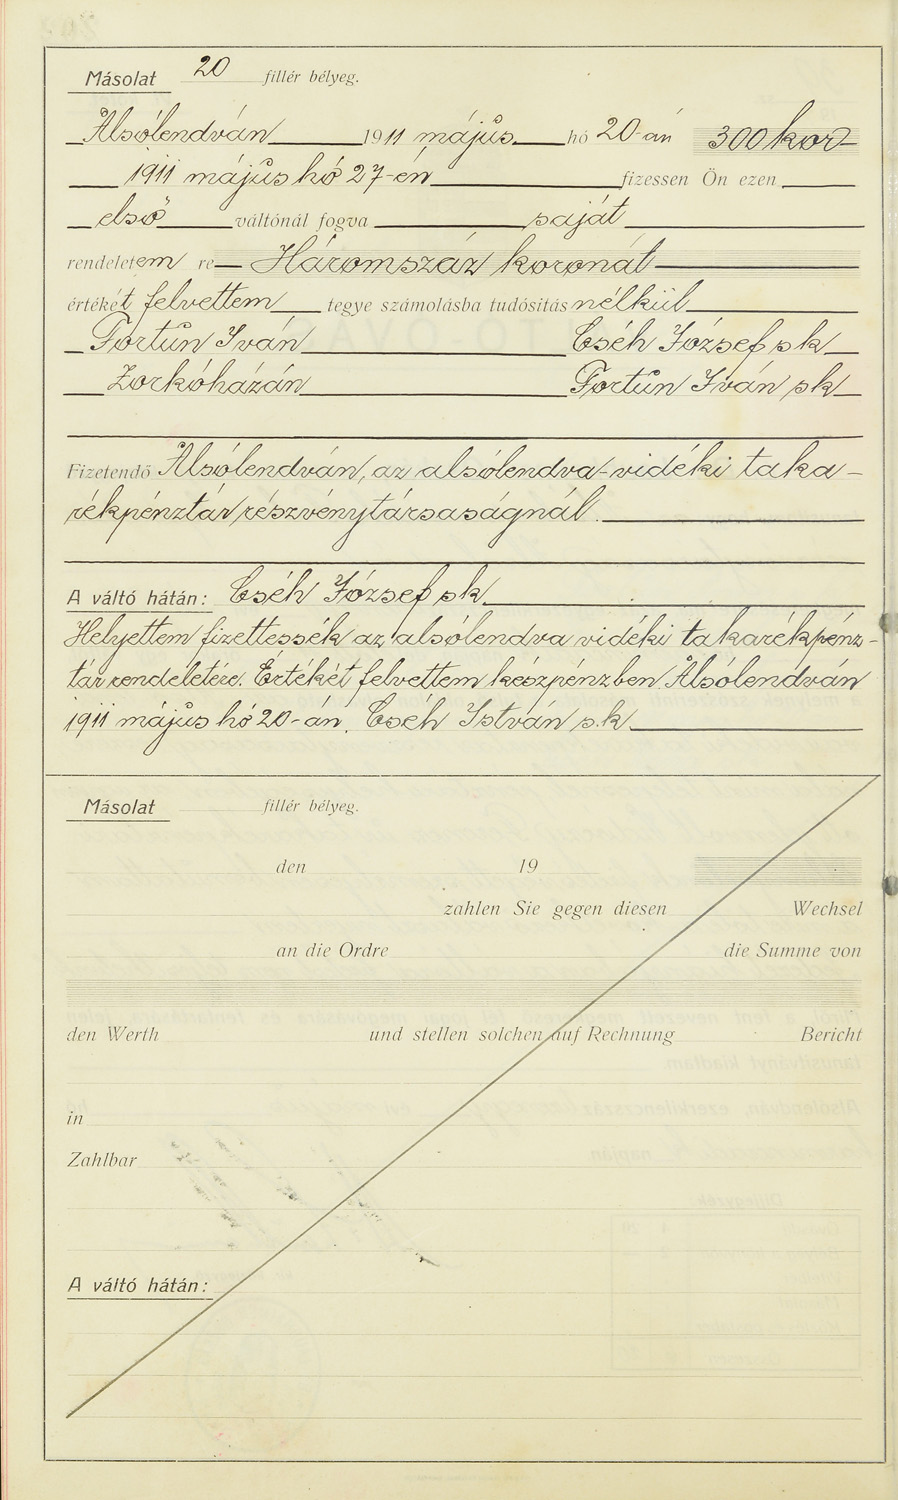 Másolat 20 fillér bélyeg.
Alsólendván 1911 május hó 20-án 300 kor
1911 május hó 27-én fizessen Ön ezen
első váltónál fogva saját
rendeletem re Háromszáz koronát
értékét felvettem tegye számolásba tudósitás nélkül
Fortún Iván Cséh József sk
Zorkóházán Fortún Iván sk
Fizetendő Alsólendván, az alsólendva-vidéki taka-
rékpénztár részvénytársaságnál.
A váltó hátán: Cséh József sk
Helyettem fizettessék az alsólendva vidéki takarékpénz-
tár rendeletére. Értékét felvettem készpénzben. Alsólendván
1911 május hó 20-án. Cséh István s.k.
Másolat fillér bélyeg.
den 19
zahlen Sie gegen diesen Wechsel
an die Ordre die Summe von
den Werth und stellen solchen auf Rechnung Bericht
in
Zahlbar
A váltó hátán: